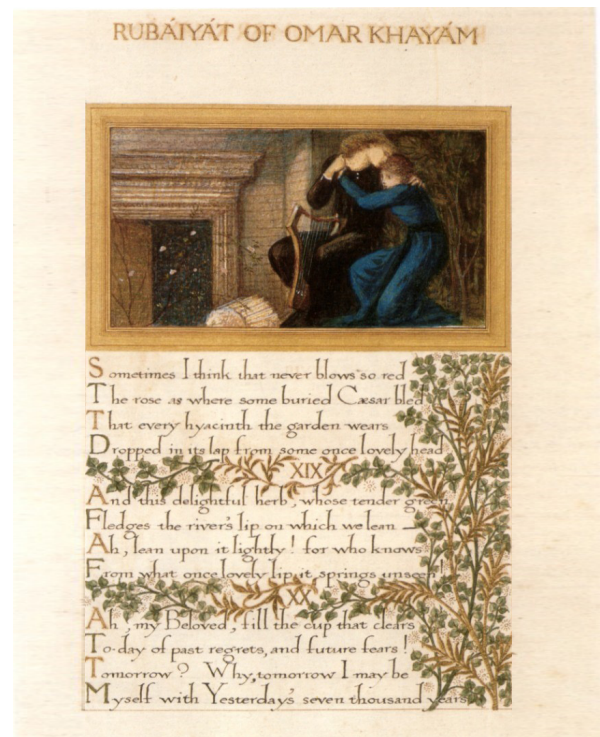 RUBÁIYÁT OF OMAR KHAYÁM
Sometimes I think that never blows so red
The rose as where some buried Cæsar bled
That every hyacinth the garden wears
Dropped in its lap from some once lovely head
XIX
And this delightful herb, whose tender green
Fledges the river's lip on which we lean —
Ah, lean upon it lightly! for who knows
From what once lovely lip it springs unseen!
XX
Ah, my Beloved, fill the cup that clears
To-day of past regrets, and future fears!
Tomorrow? Why, tomorrow I may be
Myself with Yesterday's seven thousand years